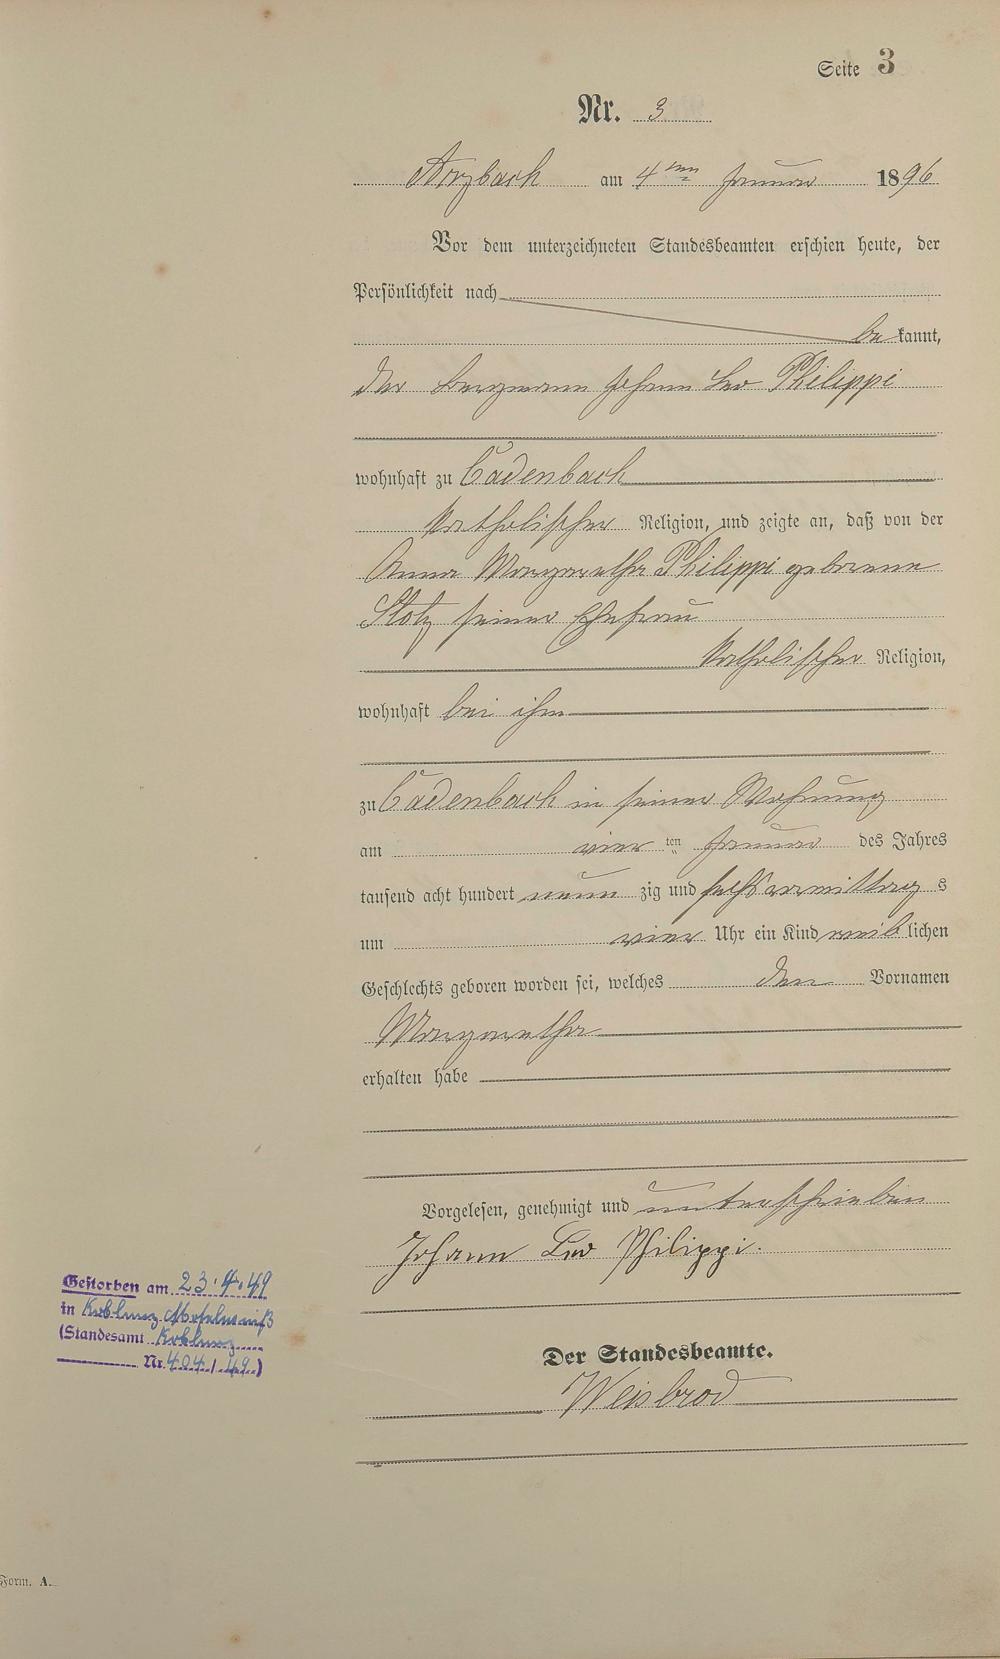 Seite 3
Nr. 3
Arzbach am 4ten Januar 1896
Vor dem unterzeichneten Standesbeamten erschien heute, der
Persönlichkeit nach
be kannt,
der Bergmann Johann Leo Philippi
wohnhaft zu Cadenbach
katholischer Religion, und zeigte an, daß von der
Anna Margaretha Philippi geborenen
Stolz seiner Ehefrau
katholischer Religion,
wohnhaft bei ihm
zu Cadenbach in seiner Wohnung
am vier ten Januar des Jahres
tausend acht hundert neun zig und sechs vormittag s
um vier Uhr ein Kind weib lichen
Geschlechts geboren worden sei, welches den Vornamen
Margaretha
erhalten habe
Vorgelesen, genehmigt und unterschrieben
Johann Leo Philippi.
Gestorben am 23.4.49
in Koblenz-Moselweiß
(Standesamt Koblenz
Nr. 404/49)
Der Standesbeamte.
Weisbrod
Form. A.